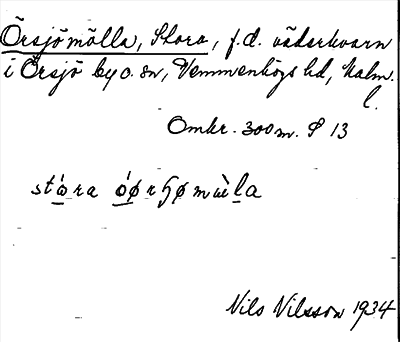 Örsjömölla, Stora, f.d. väderkvarn
i Örsjö by o. sn, Vemmenhögs hd, Malm.
l.
Omkr. 300 m. S 13
Nils Nilsson 1934